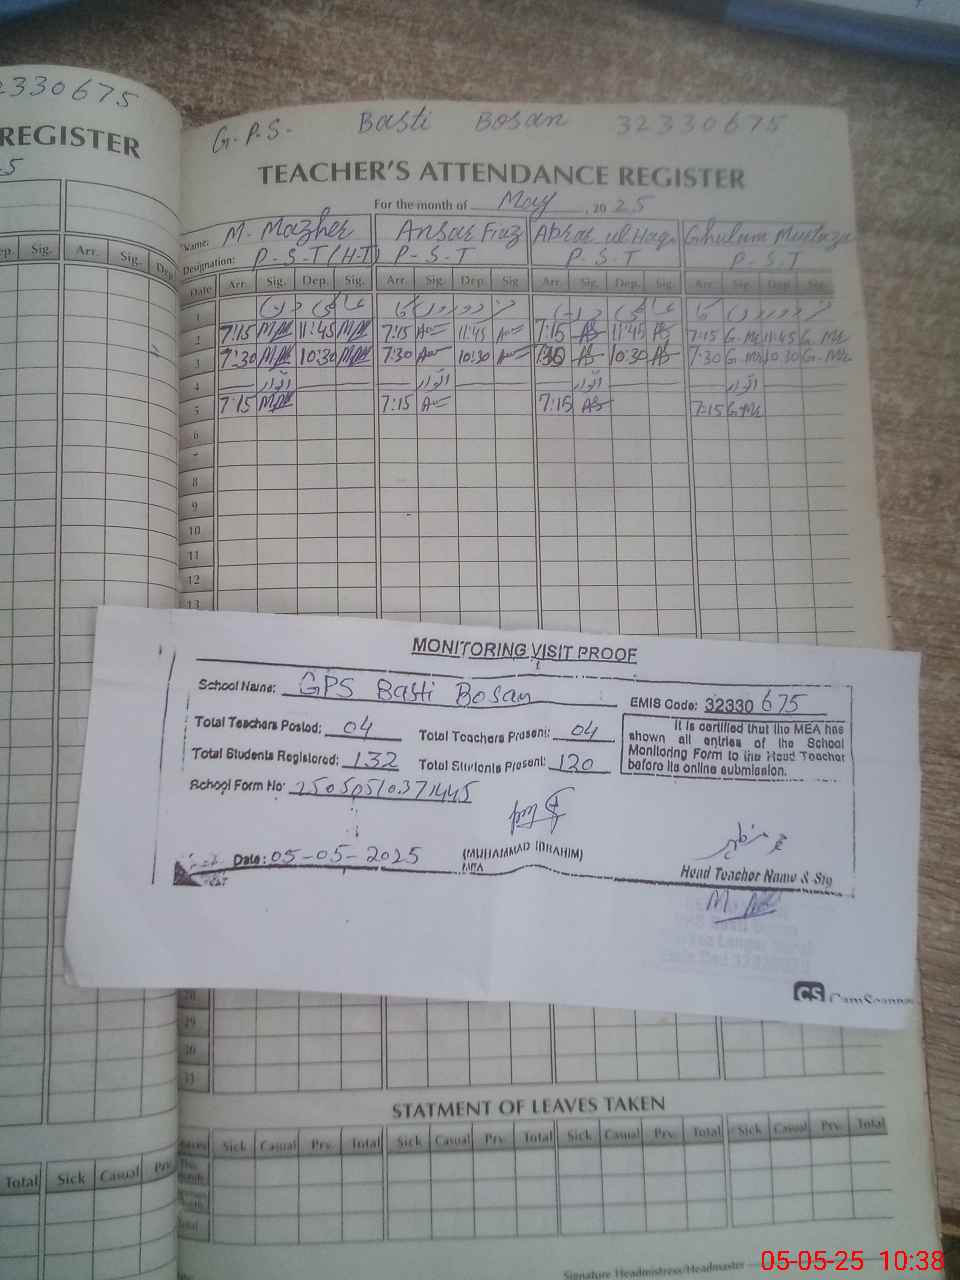 32330675
REGISTER
G.P.S. Basti Bosan 32330675
TEACHER'S ATTENDANCE REGISTER
For the month of May, 2025
Name: M. Mazher Ansar Fiaz Abrar ul Haq Ghulam Murtaza
Designation: P.S.T (H.T) P.S.T P.S.T P.S.T
Date Arr. Sig. Dep. Sig. Arr. Sig. Dep. Sig. Arr. Sig. Dep. Sig. Arr. Sig. Dep. Sig.
1
2 7:15 11:45 7:15 11:45 7:15 11:45 7:15 11:45
3 7:30 10:30 7:30 10:30 10:30 7:30 10:30
4 اتوار اتوار اتوار اتوار
5 7:15 7:15 7:15 7:15
6
7
8
9
10
11
12
13
MONITORING VISIT PROOF
School Name: GPS Basti Bosan EMIS Code: 32330675
Total Teachers Posted: 04 Total Teachers Present: 04
Total Students Registered: 132 Total Students Present: 120
It is certified that the MEA has
shown all entries of the School
Monitoring Form to the Head Teacher
before its online submission.
School Form No:
Date: 05-05-2025 (MUHAMMAD IBRAHIM)
Head Teacher Name & Sig
CS CamScanner
28
29
30
31
STATMENT OF LEAVES TAKEN
Sick Casual Prv. Total Sick Casual Prv. Total Sick Casual Prv. Total Sick Casual Prv. Total
Total Sick Casual Prv.
Total
Signature Headmistress/Headmaster
05-05-25 10:38